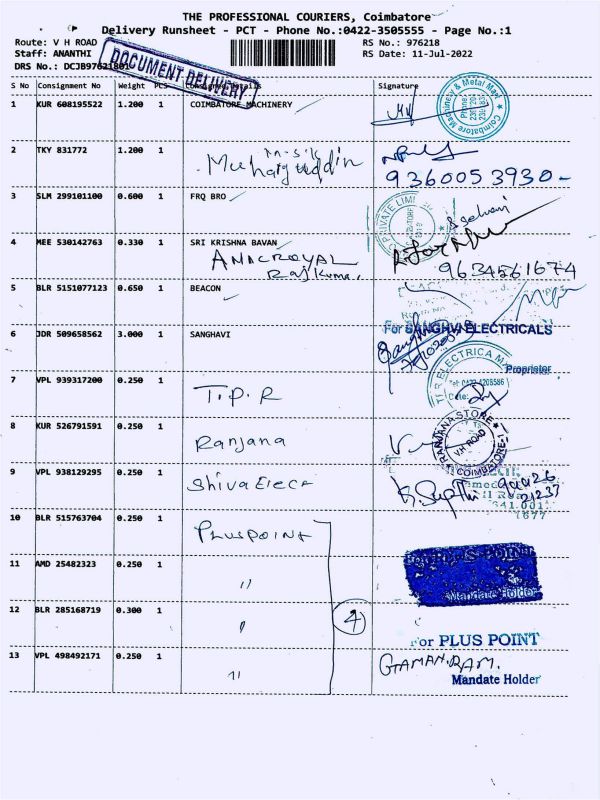 THE PROFESSIONAL COURIERS, Coimbatore
Delivery Runsheet - PCT - Phone No.:0422-3505555 - Page No.:1
Route: V H ROAD RS No.: 976218
Staff: ANANTHI RS Date: 11-Jul-2022
DRS No.: DCJB97621801
DOCUMENT DELIVERY
S No Consignment No Weight PCS Consignee Details Signature
1 KUR 608195522 1.200 1 COIMBATORE MACHINERY
Coimbatore Machinery & Metal Mart
2 TKY 831772 1.200 1
9360053930
3 SLM 299101100 0.600 1 FRQ BRO
PRIVATE LIMI
4 MEE 530142763 0.330 1 SRI KRISHNA BAVAN
Rajkumar 9634561674
5 BLR 5151077123 0.650 1 BEACON
For SANGHVI ELECTRICALS
6 JDR 509658562 3.000 1 SANGHAVI
Proprietor
7 VPL 939317200 0.250 1 T.P.R
8 KUR 526791591 0.250 1 Ranjana
RANJANA STORE V.H ROAD COIMBATORE-1
9 VPL 938129295 0.250 1 Shiva Elece
10 BLR 515763704 0.250 1 PLUSPOINT
11 AMD 25482323 0.250 1 "
Mandate Holder
12 BLR 285168719 0.300 1 "
4
For PLUS POINT
13 VPL 498492171 0.250 1 "
GAMAN.RAM.
Mandate Holder